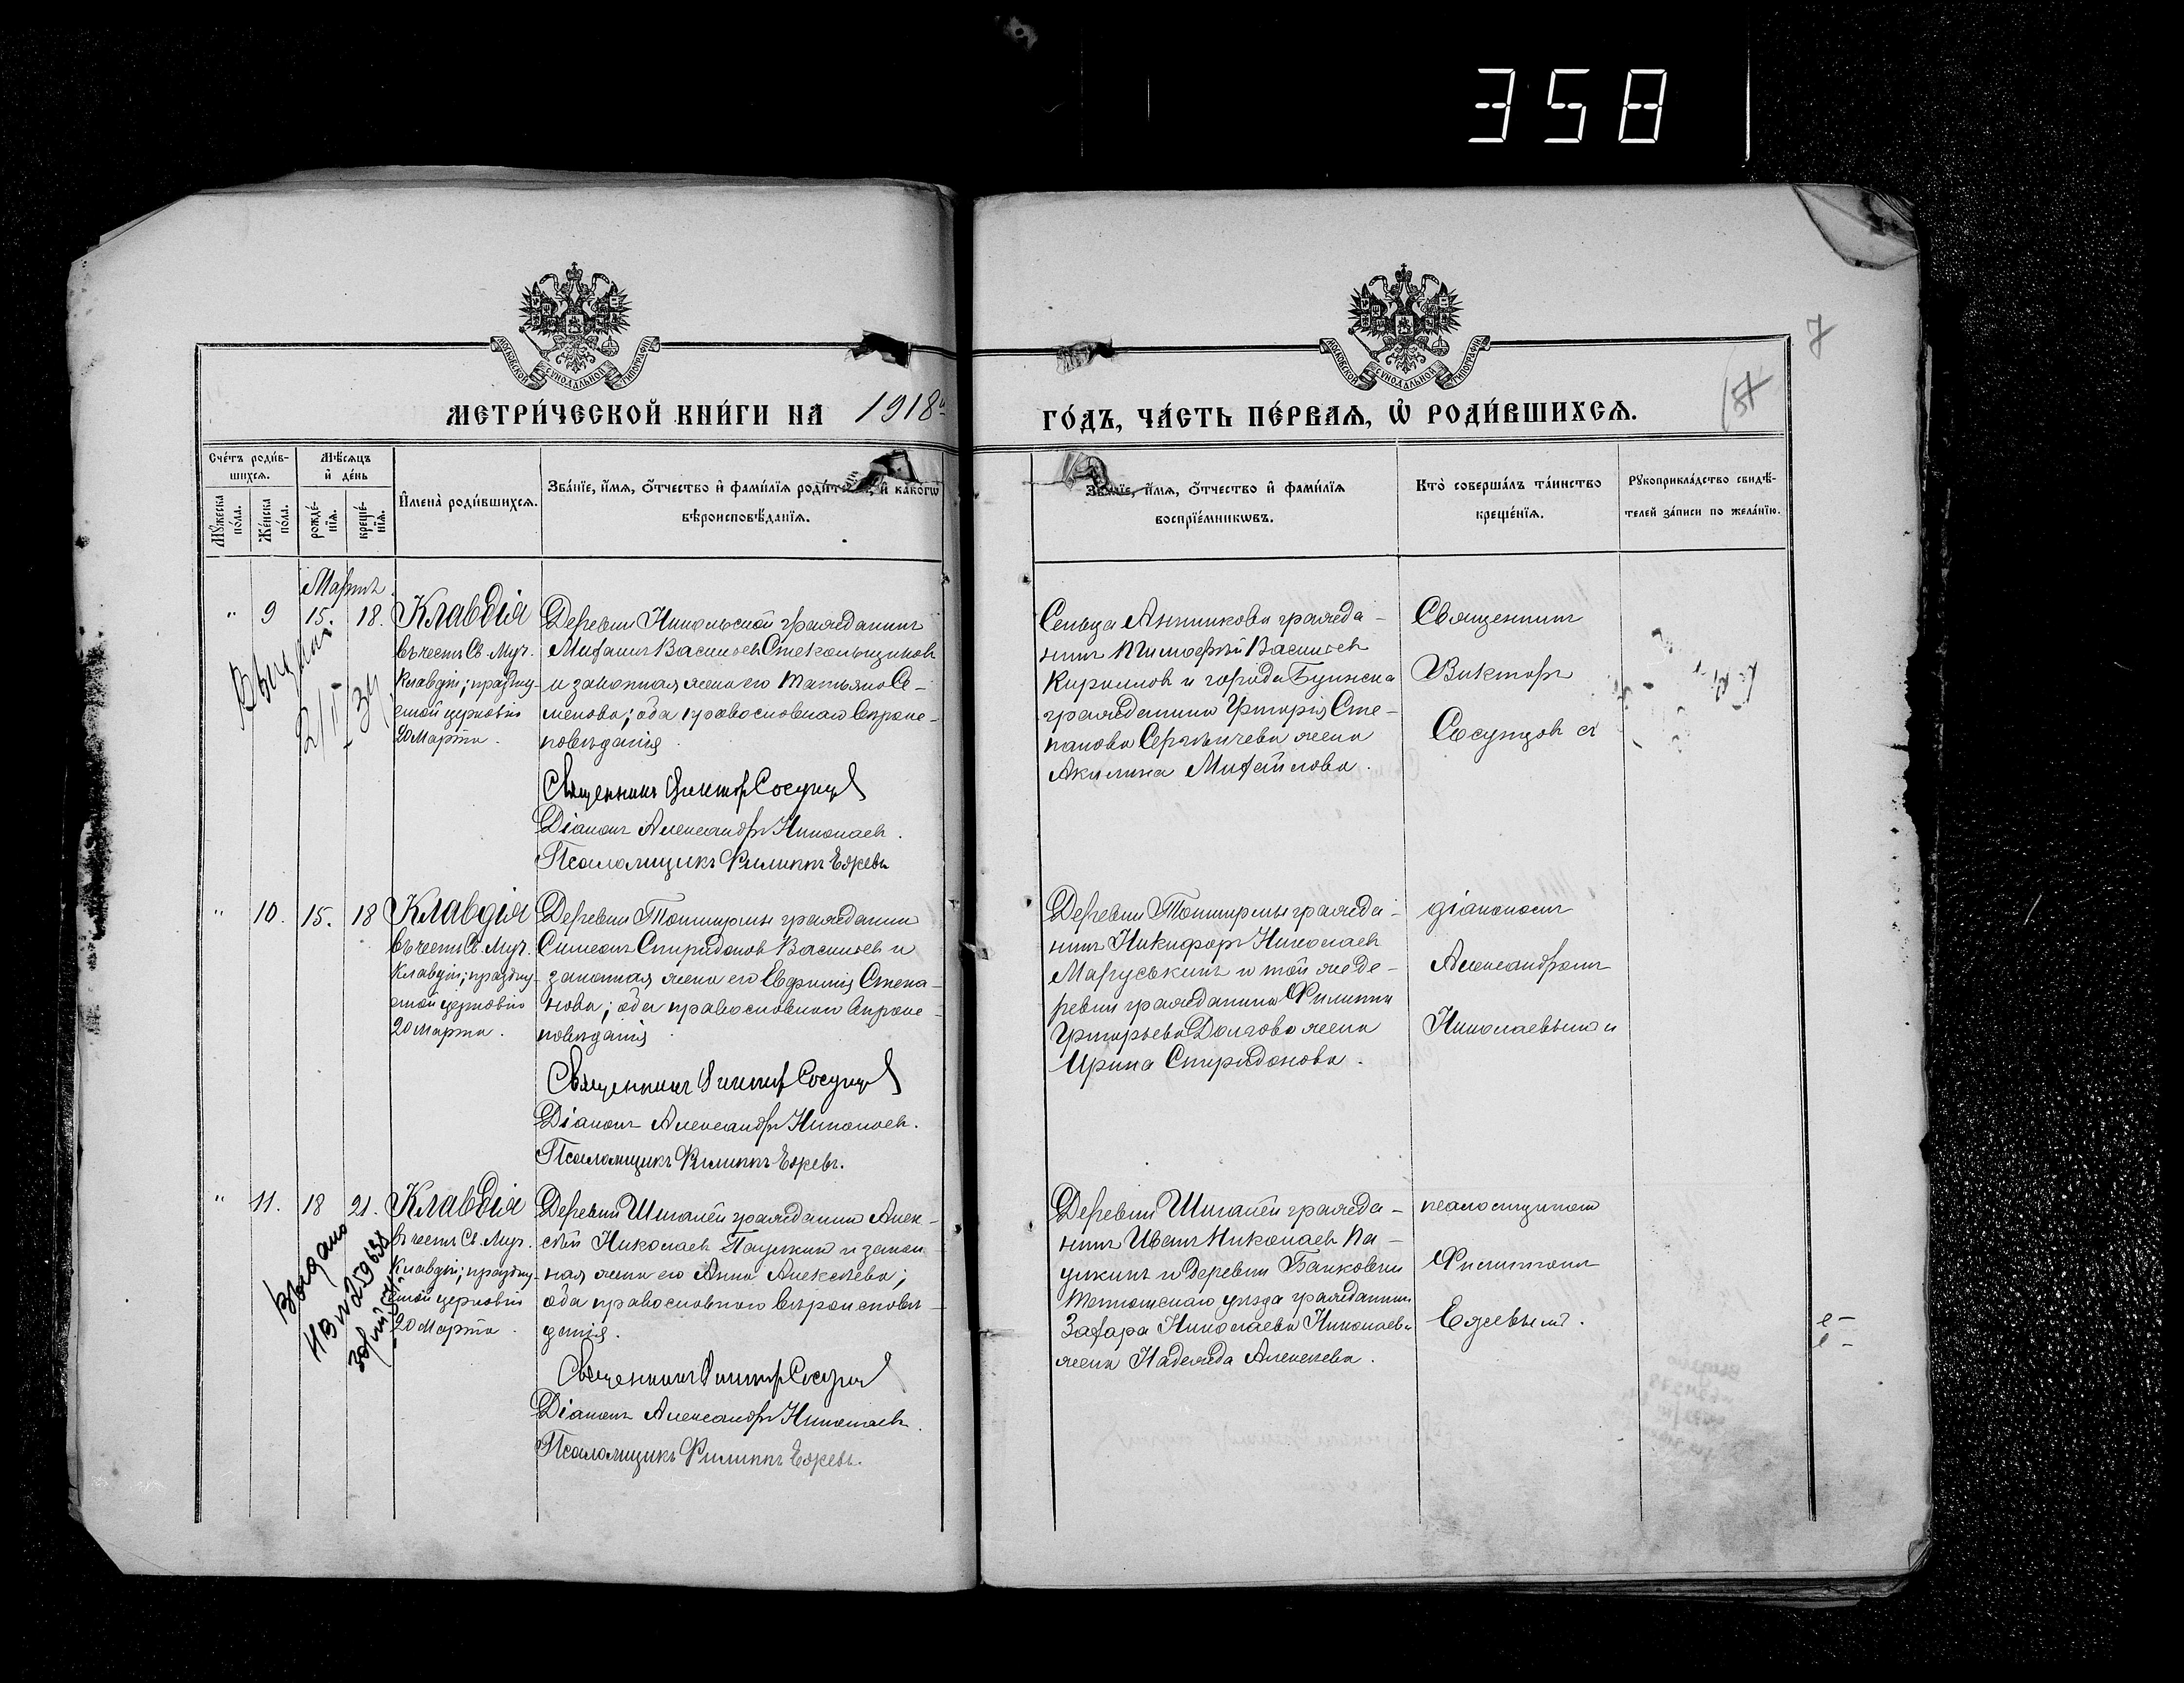 358
МОСКОВСКОЙ СѴНОДАЛЬНОЙ ТИПОГРАФІИ
МОСКОВСКОЙ СѴНОДАЛЬНОЙ ТИПОГРАФІИ
7
МЕТРИ́ЧЕСКОЙ КНИ́ГИ НА 1918
ГО́ДЪ, ЧА́СТЬ ПЕ́РВАѦ, Ѡ РОДИ́ВШИХСѦ.
Сче́тъ роди́в-
шихсѧ.
Мѣ́сѧцъ
и де́нь
Мꙋ́жеска
по́ла.
Же́нска
по́ла.
рожде́-
нїѧ.
креще́-
нїѧ.
Имена̀ роди́вшихсѧ.
Зва́нїе, и́мѧ, о́тчество и фами́лїѧ и како́гѡ
вѣроисповѣ́данїѧ.
Зва́нїе, и́мѧ, о́тчество и фами́лїѧ
воспрїе́мникѡвъ.
Кто̀ соверша́лъ та́инство
креще́нїѧ.
Рꙋкоприкла́дство свидѣ́-
телей за́писи по жела́нїю.
Мартъ.
" 9 15. 18. Клавдія
въ честь Св. Муч.
Клавдіи; праздну-
емой церковію
20 Марта.
Деревни Никольской гражданинъ
Михаилъ Васильевъ Стекольщиковъ
и законная жена его Татьяна Се-
менова; оба православнаго вѣроис-
повѣданія.
Священникъ Викторъ Сосунцовъ
Діаконъ Александръ Николаевъ.
Псаломщикъ Филиппъ Ежевъ
Сельца гражда-
нинъ Тимофей Васильевъ
Кирилловъ и города Буинска
гражданина Григорія Сте-
панова жена
Акилина Михайлова.
Священникъ
Викторъ
Сосунцовъ
" 10. 15. 18 Клавдія
въ честь Св. Муч.
Клавдіи; праздну-
емой церковію
20 Марта.
Деревни гражданинъ
Симеонъ Спиридоновъ Васильевъ и
законная жена его Евфимія Степа-
нова; оба православнаго вѣроис-
повѣданія.
Священникъ Викторъ Сосунцовъ
Діаконъ Александръ Николаевъ.
Псаломщикъ Филиппъ Ежевъ.
Деревни гражда-
нинъ Никифоръ Николаевъ
Маруськинъ и той же де-
ревни гражданина Филиппа
Григорьева Долгова жена
Ирина Спиридонова.
діакономъ
Александромъ
Николаевымъ
" 11. 18 21. Клавдія
въ честь Св. Муч.
Клавдіи; праздну-
емой церковію
20 Марта.
Выдано
Деревни Шигалей гражданинъ Алек-
сѣй Николаевъ и закон-
ная жена его Анна Алексѣева;
оба православнаго вѣроисповѣ-
данія.
Священникъ Викторъ Сосунцовъ
Діаконъ Александръ Николаевъ.
Псаломщикъ Филиппъ Ежевъ.
Деревни Шигалей гражда-
нинъ Иванъ Николаевъ Па-
и деревни
уѣзда гражданина
Захара Николаева Николаева
жена Надежда Алексѣева.
псаломщикомъ
Филиппомъ
Ежевымъ.